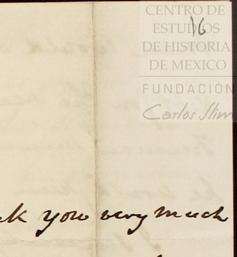 CENTRO DE
ESTUDIOS
16
DE HISTORIA
DE MEXICO
FUNDACIÓN
Carlos Slim
you very much